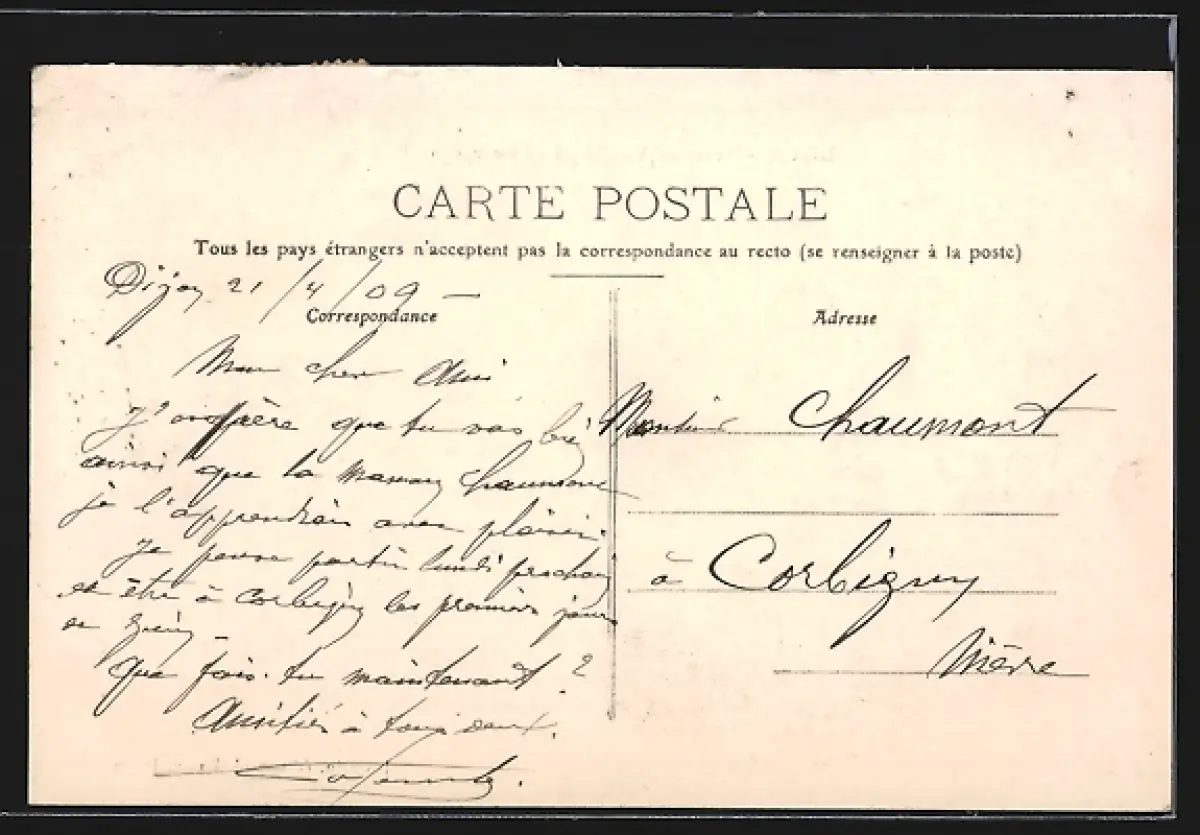 CARTE POSTALE
Tous les pays étrangers n'acceptent pas la correspondance au recto (se renseigner à la poste)
Dijon 21/4/09 —
Correspondance
Mon cher Ami
J'espère que tu vas bien
ainsi que la maman Chaumont
je l'apprendrais avec plaisir.
Je pense partir lundi prochain
et être à Corbigny les premiers jours
de
Que fais-tu maintenant ?
Amitiés à tous deux.
Adresse
Monsieur Chaumont
à Corbigny
Nièvre